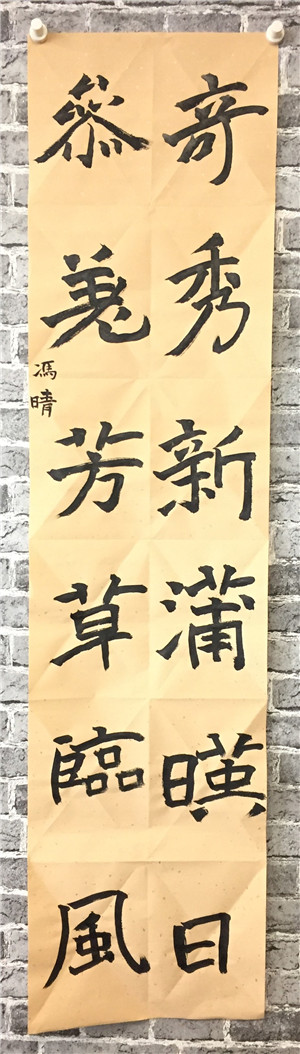 奇秀新蒲暎日
叅差芳草臨風
馮晴